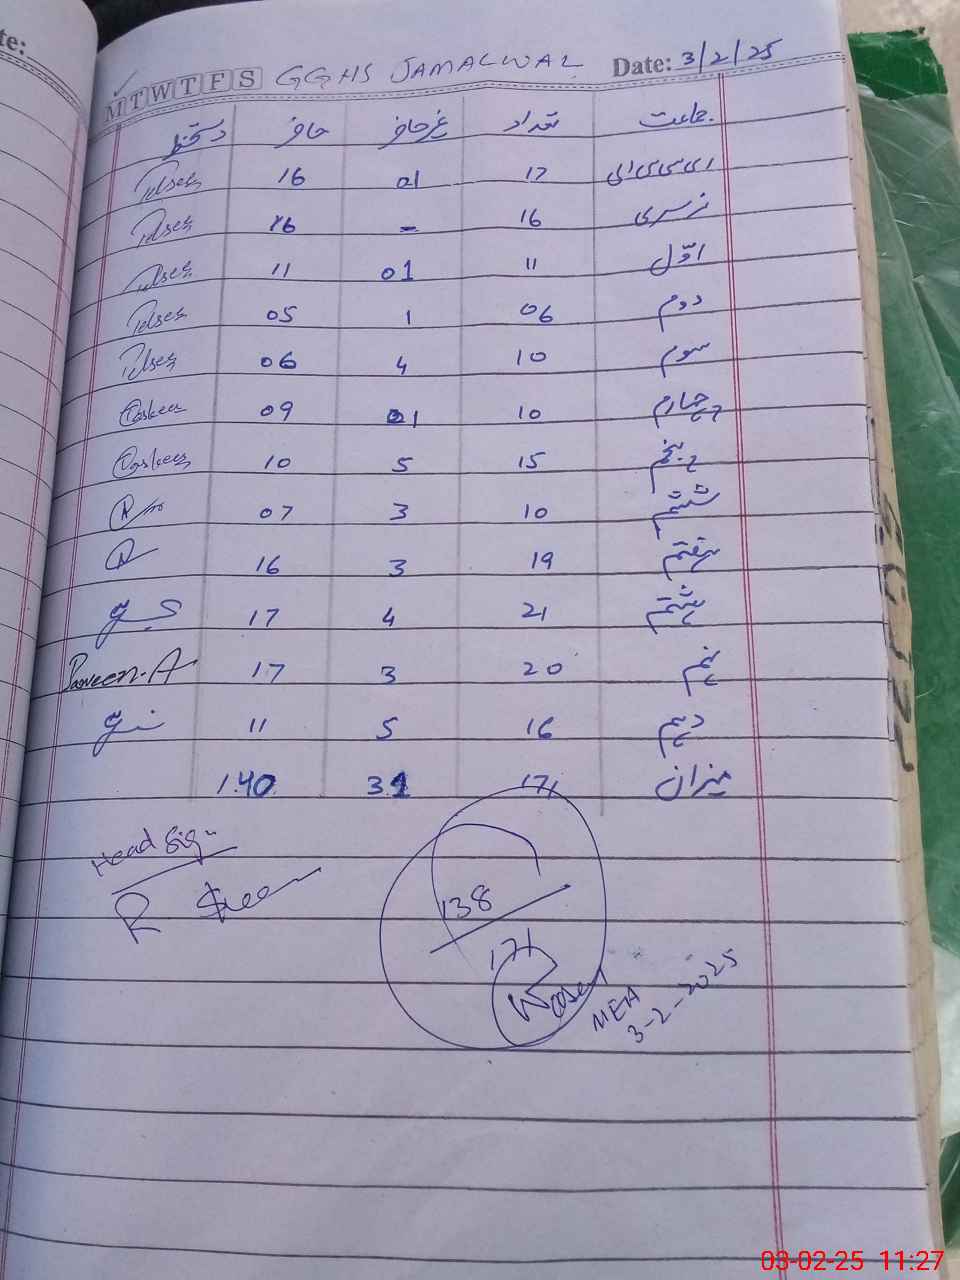 te:
M T W T F S GGHS JAMALWAL Date: 3/2/25
جماعت تعداد غیر حاضر حاضر دستخط
ای سی سی ای 17 01 16
نرسری 16 - 16
اوّل 11 01 11
دوم 06 1 05
سوم 10 4 06
چہارم 10 01 09
پنجم 15 5 10
ششم 10 3 07
ہفتم 19 3 16
ہشتم 21 4 17
نہم 20 3 17 Parveen.A
دہم 16 5 11
میزان 171 31 140
Head Sig-
R
138
171
MEA
3-2-2025
03-02-25 11:27